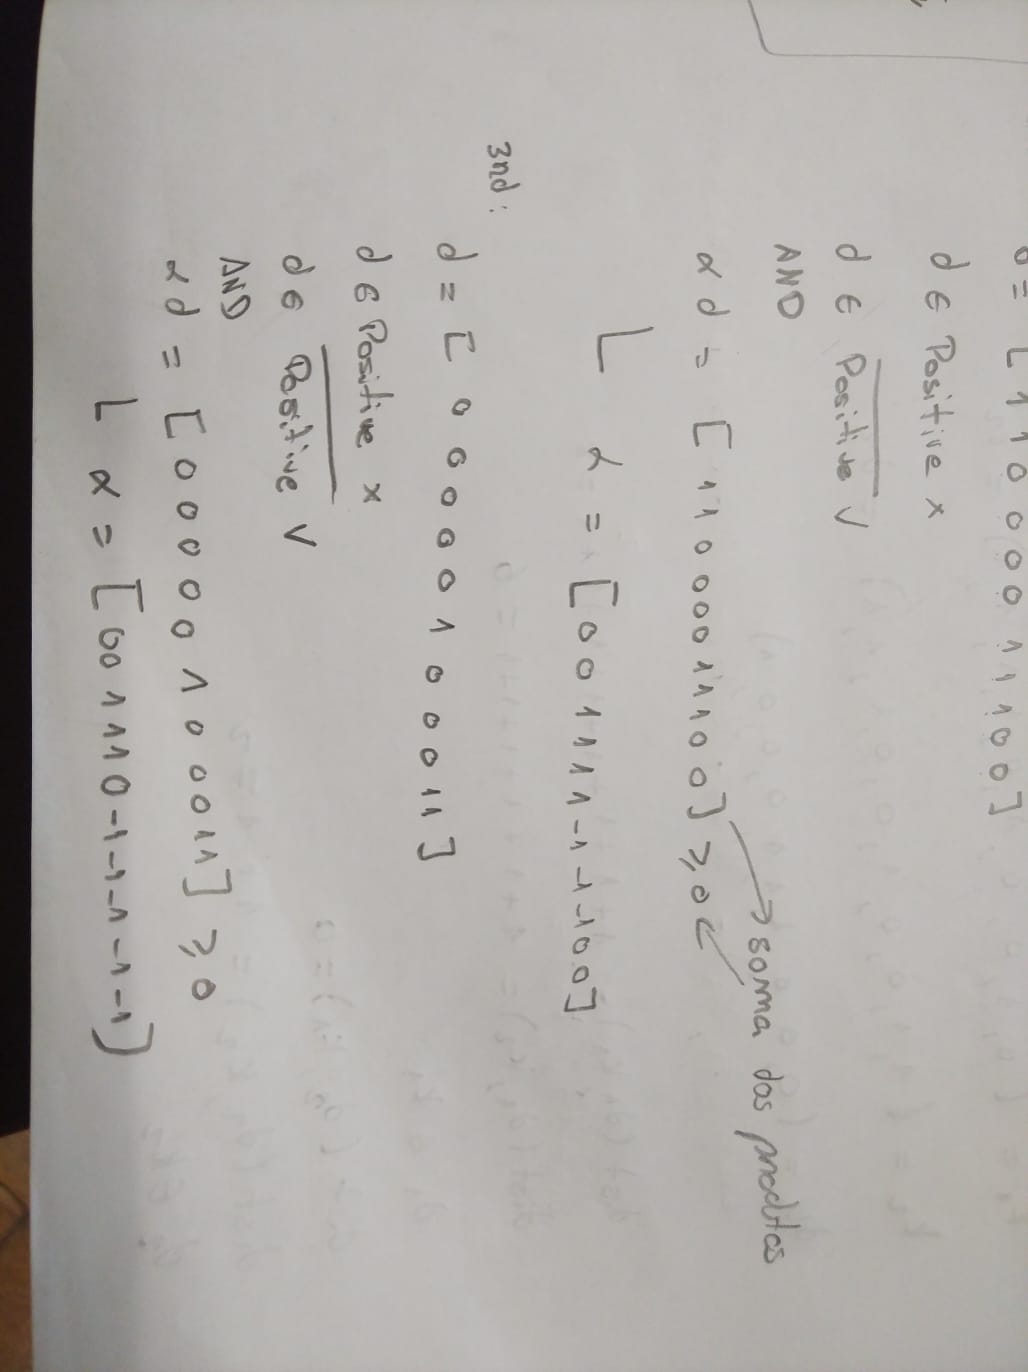 d = [ 1 1 0 0 0 0 1 1 1 0 0 ]
d ∈ Positive x
d ∈ Positive v
AND
α d = [ 1 1 0 0 0 0 1 1 1 0 0 ] ≥ 0
soma dos produtos
L α = [ 0 0 1 1 1 1 -1 -1 -1 0 0 ]
3nd:
d = [ 0 0 0 0 0 1 0 0 0 1 1 ]
d ∈ Positive x
d ∈ Positive v
AND
α d = [ 0 0 0 0 0 1 0 0 0 1 1 ] ≥ 0
L α = [ 0 0 1 1 1 0 -1 -1 -1 -1 -1 ]